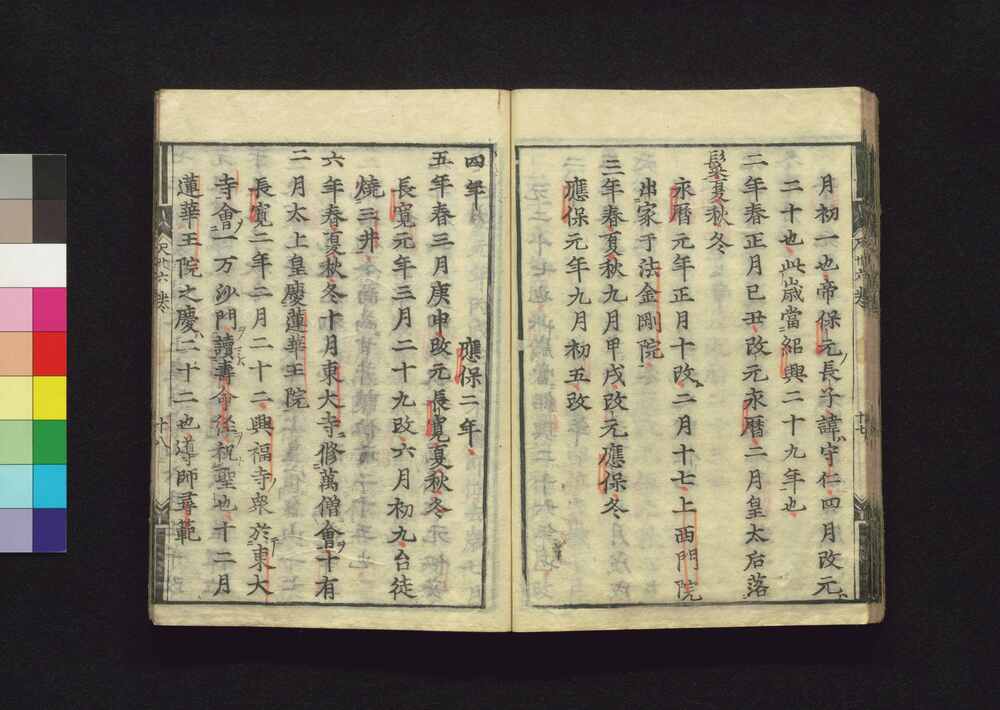 月初一也帝保元長子諱守仁四月改元
二十也此歳當紹興二十九年也
二年春正月己丑改元永暦二月皇太后落
鬂夏秋冬
永暦元年正月十改二月十七上西門院
出家于法金剛院
三年春夏秋九月甲戌改元應保冬
應保元年九月初五改
四年
應保二年
五年春三月庚申改元長寛夏秋冬
長寛元年三月二十九改六月初九台徒
燒三井
六年春夏秋冬十月東大寺修萬僧會十有
二月太上皇慶蓮華王院
長寛二年二月二十二興福寺衆於東大
寺會一万沙門讀壽命經祝聖也十二月
蓮華王院之慶二十二也導師尋範
十七
十八